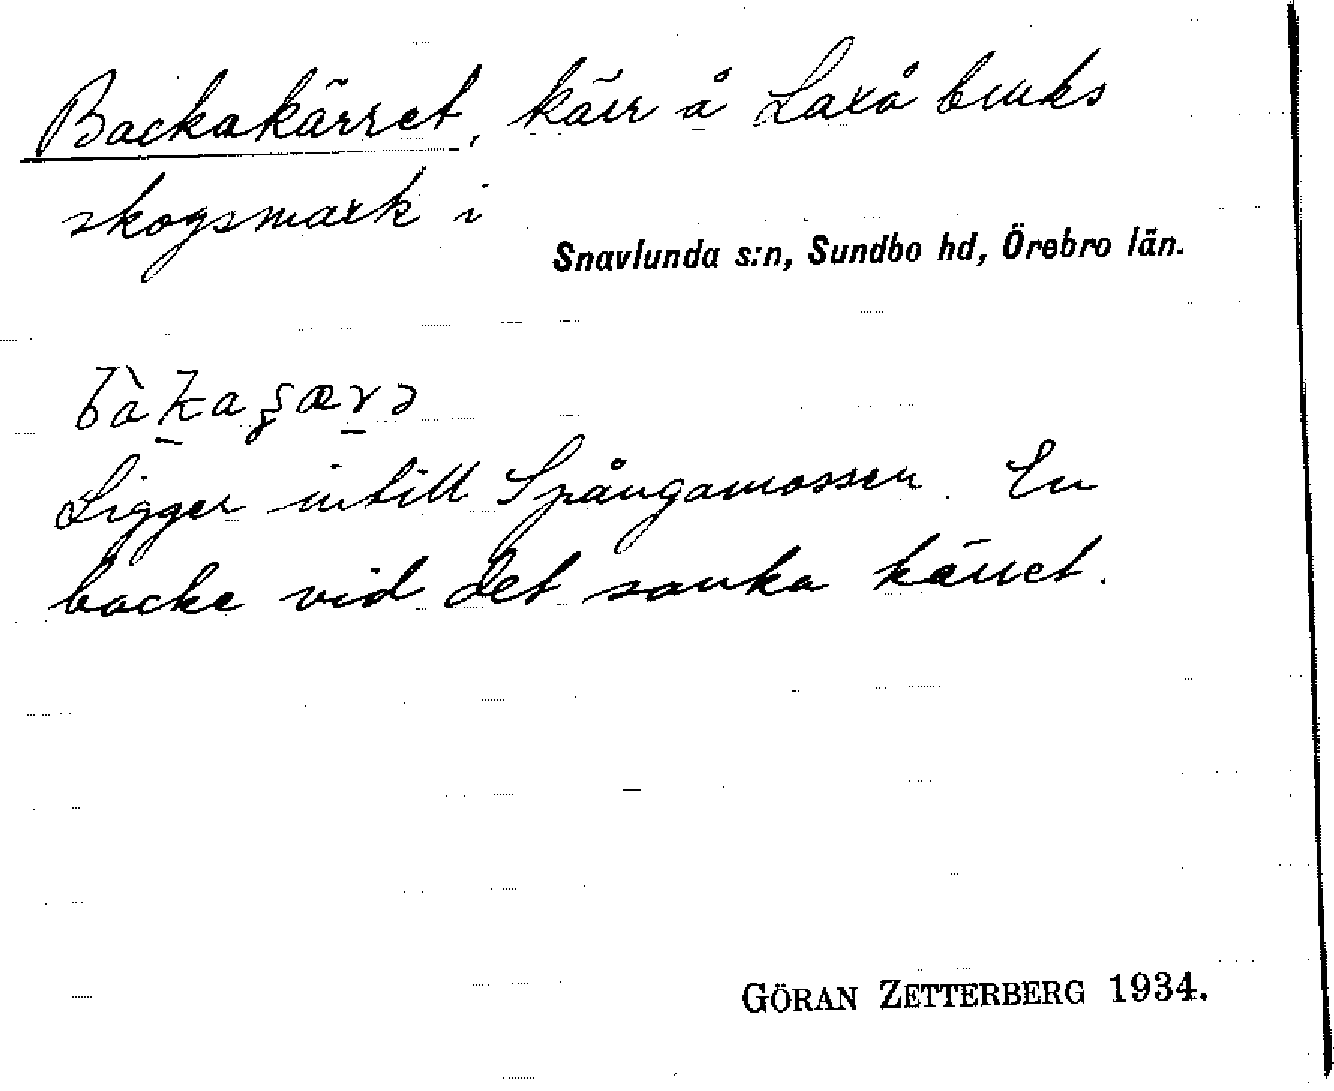 Backakärret, kärr å Laxå bruks
skogsmark i
Snavlunda s:n, Sundbo hd, Örebro län.
bàka
Ligger intill Spångamossen. En
backe vid det sanka kärret.
GÖRAN ZETTERBERG 1934.